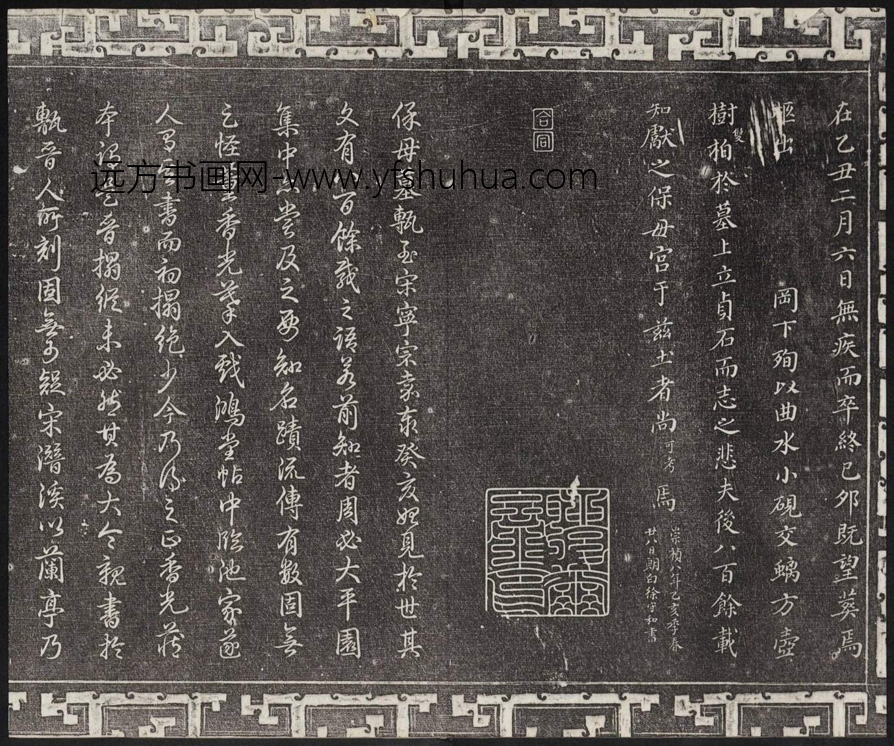 在乙丑二月六日無疾而卒終已夘既望葬焉
岡下殉以曲水小硯交螭方壺
樹
雙
柏於墓上立貞石而志之悲夫後八百餘載
知獻之保母宮于茲土者尚
可考
焉
崇禎八年乙亥季春
廿八日朗白徐守和書
合同
保母墓甎至宋寧宗嘉泰癸亥始見於世其
文有百餘載之語若前知者周必大平園
集中嘗及之要知名蹟流傳有數固無
之怪香光筆入戲鴻堂帖中臨池家遂
人書而初搨絕少今乃得之正香光藏
本晉搨縱未必然其為大令親書於
甎晉人所刻固無可疑宋潛溪以蘭亭乃
远方书画网-www.yfshuhua.com